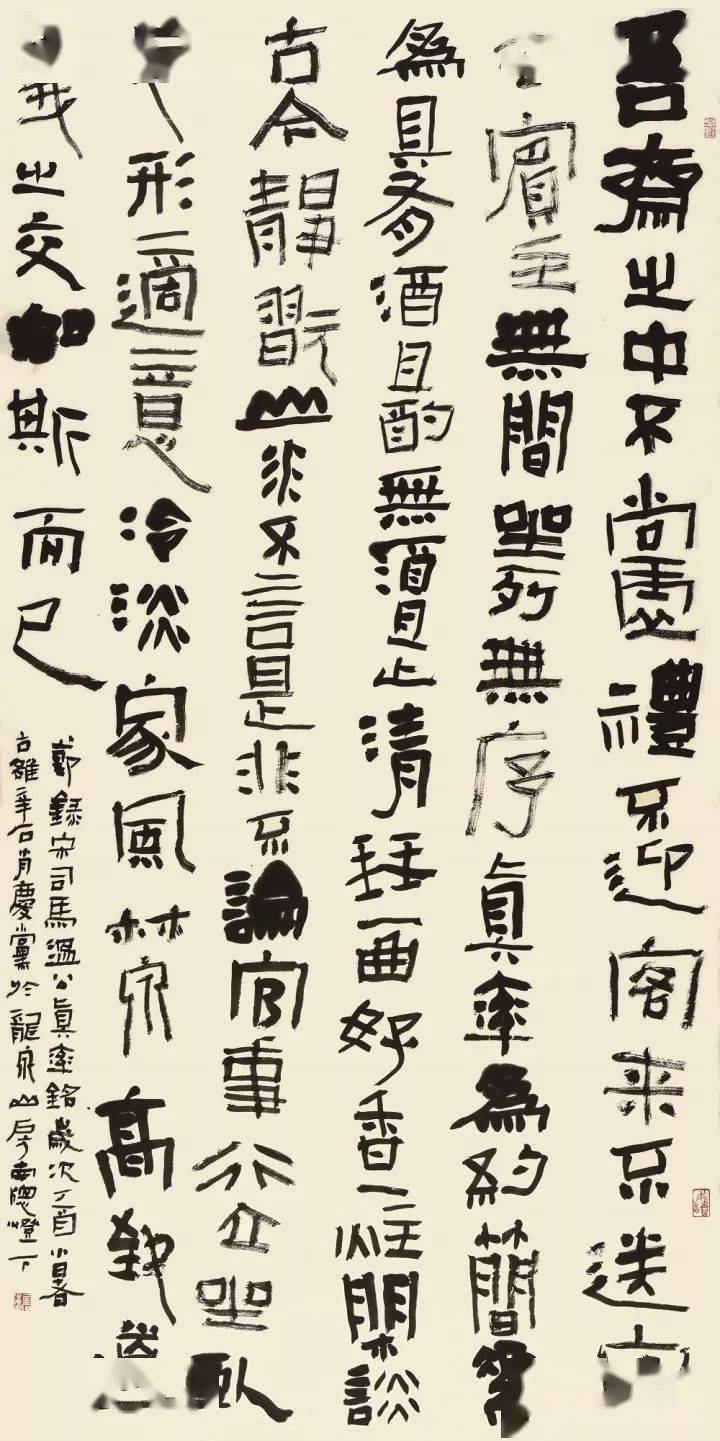 吾齋之中不尚虛禮不迎客來不送
賓主無間坐列無序真率為約簡素
為具有酒且酌無酒且止清琴一曲好香一炷閑談
古今靜翫山水不言是非不論官事行立坐臥
形適意冷淡家風林泉高致
義之交如斯而已
錄宋司馬溫公真率銘歲次丁酉小暑
古雒石肖慶黨於龍泉山房南窗燈下